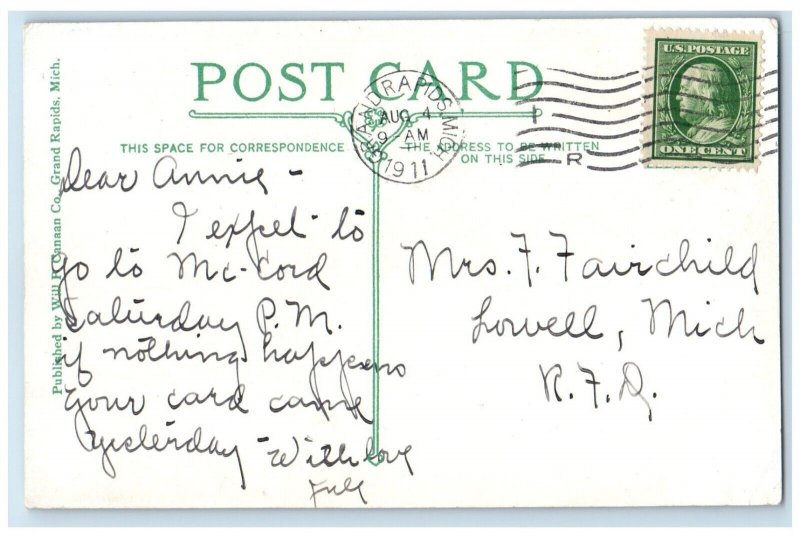 POST CARD
Published by Will P. Canaan Co., Grand Rapids, Mich.
GRAND RAPIDS, MICH.
AUG 4
9 AM
1911
R
U.S. POSTAGE
ONE CENT
THIS SPACE FOR CORRESPONDENCE
THE ADDRESS TO BE WRITTEN
ON THIS SIDE
Dear Annie -
I expect to
go to Mc-Cord
Saturday P.M.
if nothing happens
your card came
yesterday - With love
Mrs. F. Fairchild
Lowell, Mich
R.F.D.